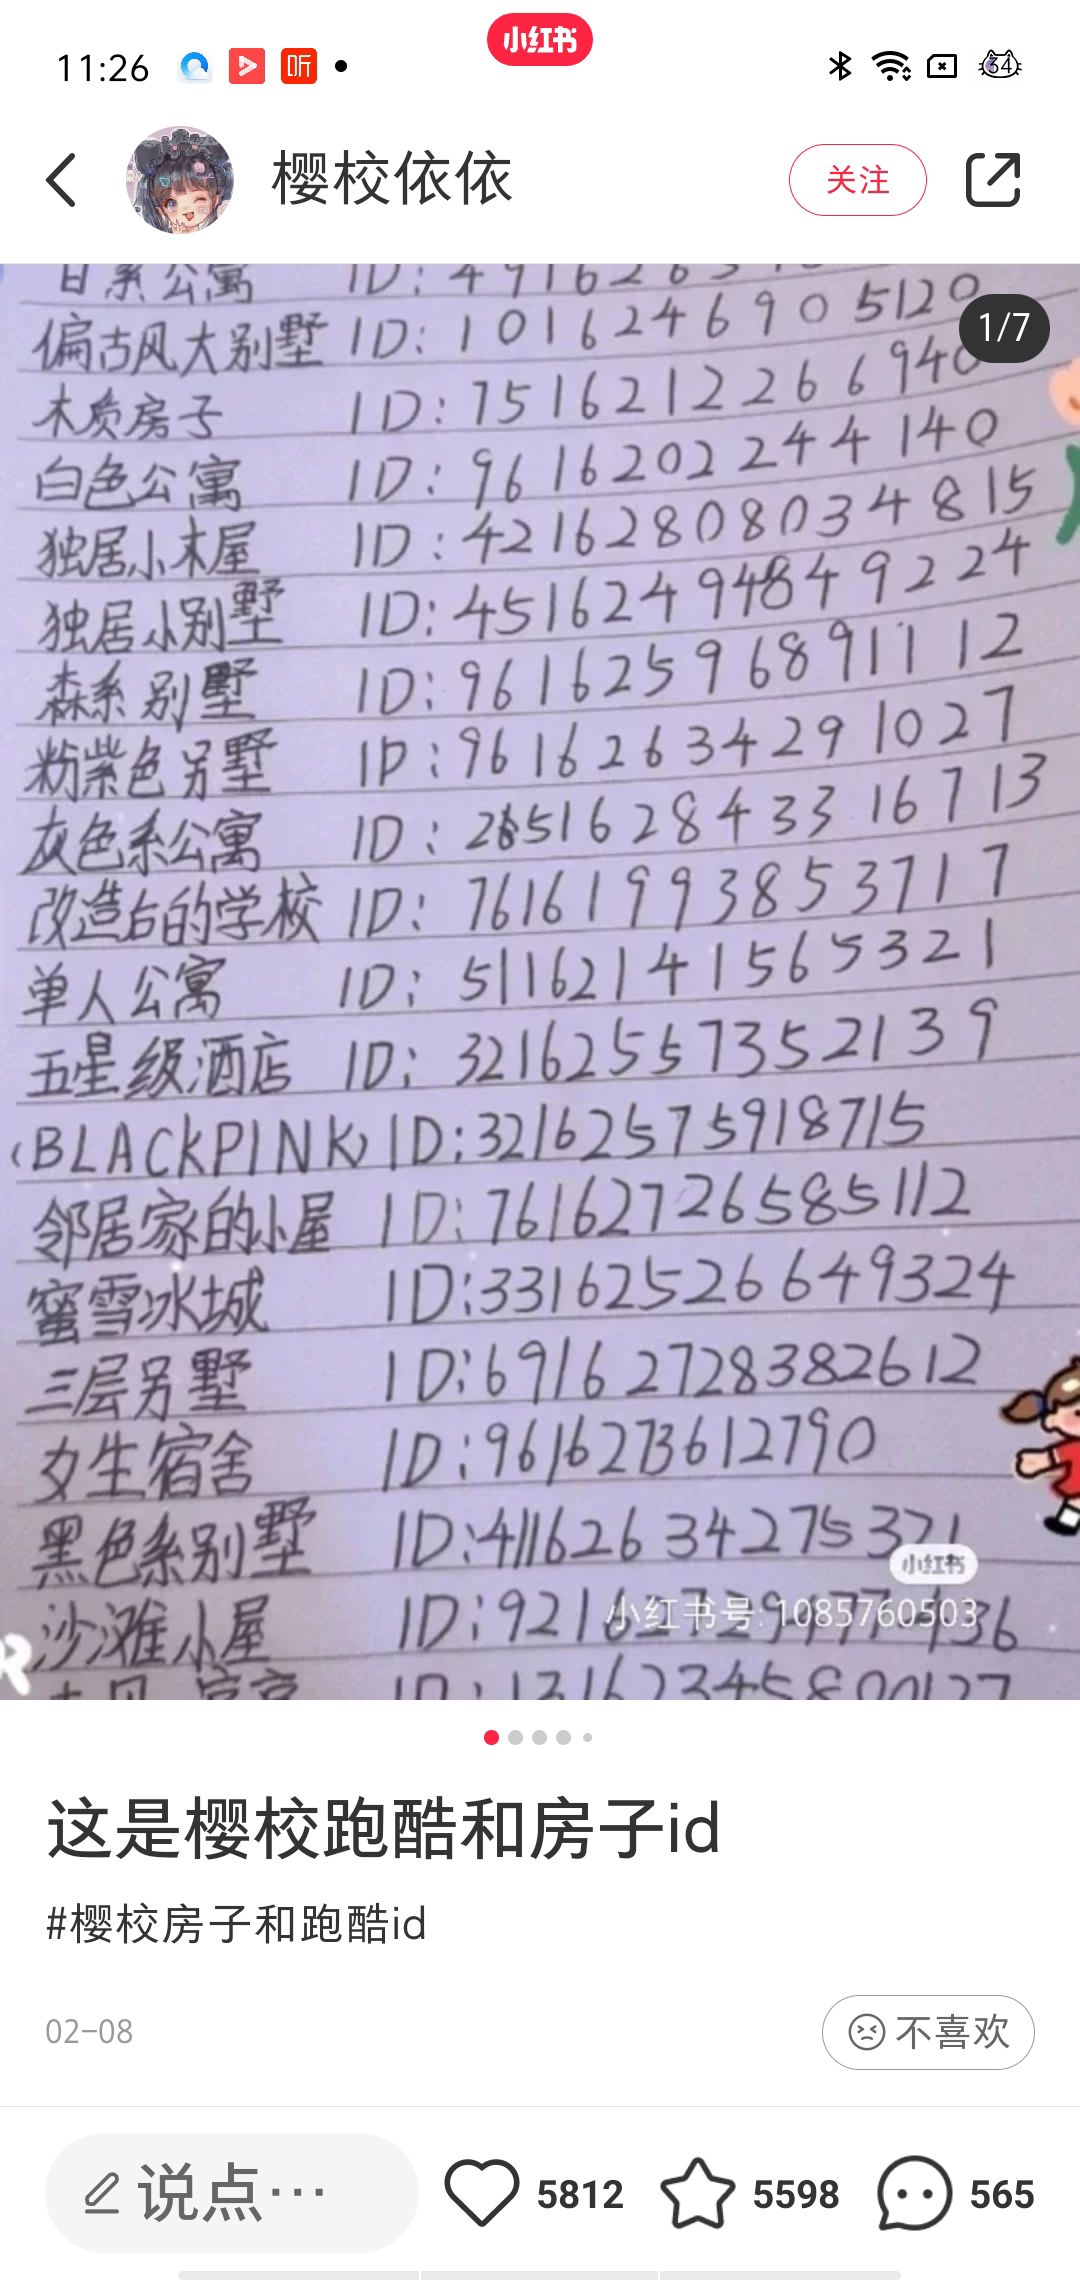 11:26
小红书
听
34
樱校依依
关注
1/7
日系公寓 ID: 491626
偏古风大别墅 ID: 1016246905120
木质房子 ID: 7516212266940
白色公寓 ID: 9616202244140
独居小木屋 ID: 4216280803 4815
独居小别墅 ID: 45162494849224
森系别墅 ID: 96162596891112
粉紫色另墅 ID: 96162634291027
灰色系公寓 ID: 16284331 6713
改造后的学校 ID: 76161993853717
单人公寓 ID: 51162141565321
五星级酒店 ID: 32162557352139
(BLACKPINK) ID:32162575918715
邻居家的小屋 ID: 76162726585112
蜜雪冰城 ID:33162526649324
三层另墅 ID:69162728382612
女生宿舍 ID:9616273612790
黑色系别墅 ID:41162634275321
小红书
沙滩小屋 ID:921
小红书号: 1085760503
这是樱校跑酷和房子id
#樱校房子和跑酷id
02-08
不喜欢
说点…
5812
5598
565